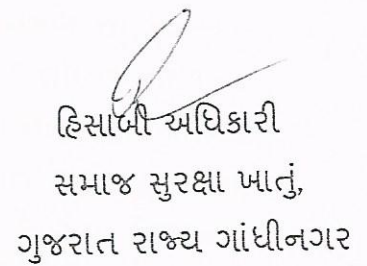 હિસાબી અધિકારી
સમાજ સુરક્ષા ખાતું,
ગુજરાત રાજ્ય ગાંધીનગર